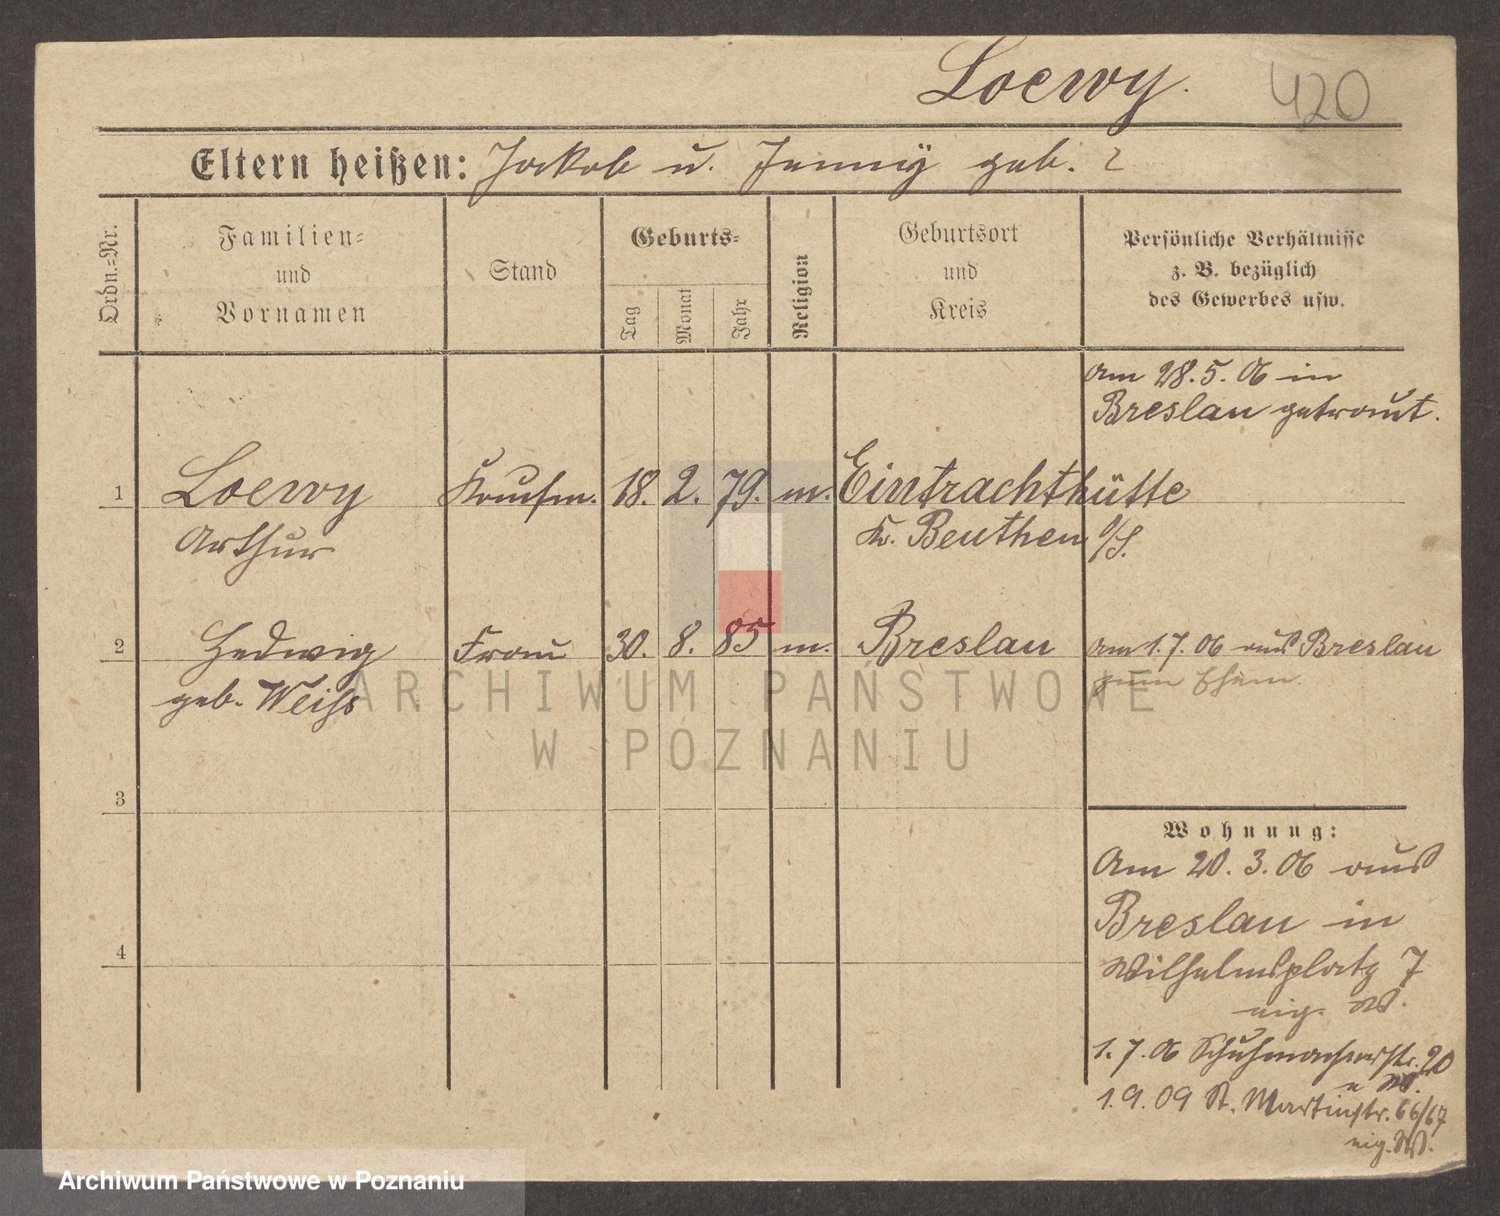 Loewy.
420
Eltern heißen: Jakob u. Jenny geb. ?
Ordn.-Nr.
Familien-
und
Vornamen
Stand
Geburts-
Tag
Monat
Jahr
Religion
Geburtsort
und
Kreis
Persönliche Verhältnisse
z. B. bezüglich
des Gewerbes usw.
am 28.5.06 in
Breslau getraut.
1 Loewy Kaufm. 18. 2. 79. m. Eintrachthütte
Arthur Kr. Beuthen O/S.
2 Hedwig Frau 30. 8. 85 m. Breslau am 1.7.06 aus Breslau
geb. Weiss zum Ehem.
3
4
Wohnung:
Am 20.3.06 aus
Breslau in
Wilhelmsplatz 7
eig. W.
1.7.06 Schuhmacherstr. 20
" W.
1.9.09 St. Martinstr. 66/67
eig. W.
ARCHIWUM PAŃSTWOWE
W POZNANIU
Archiwum Państwowe w Poznaniu